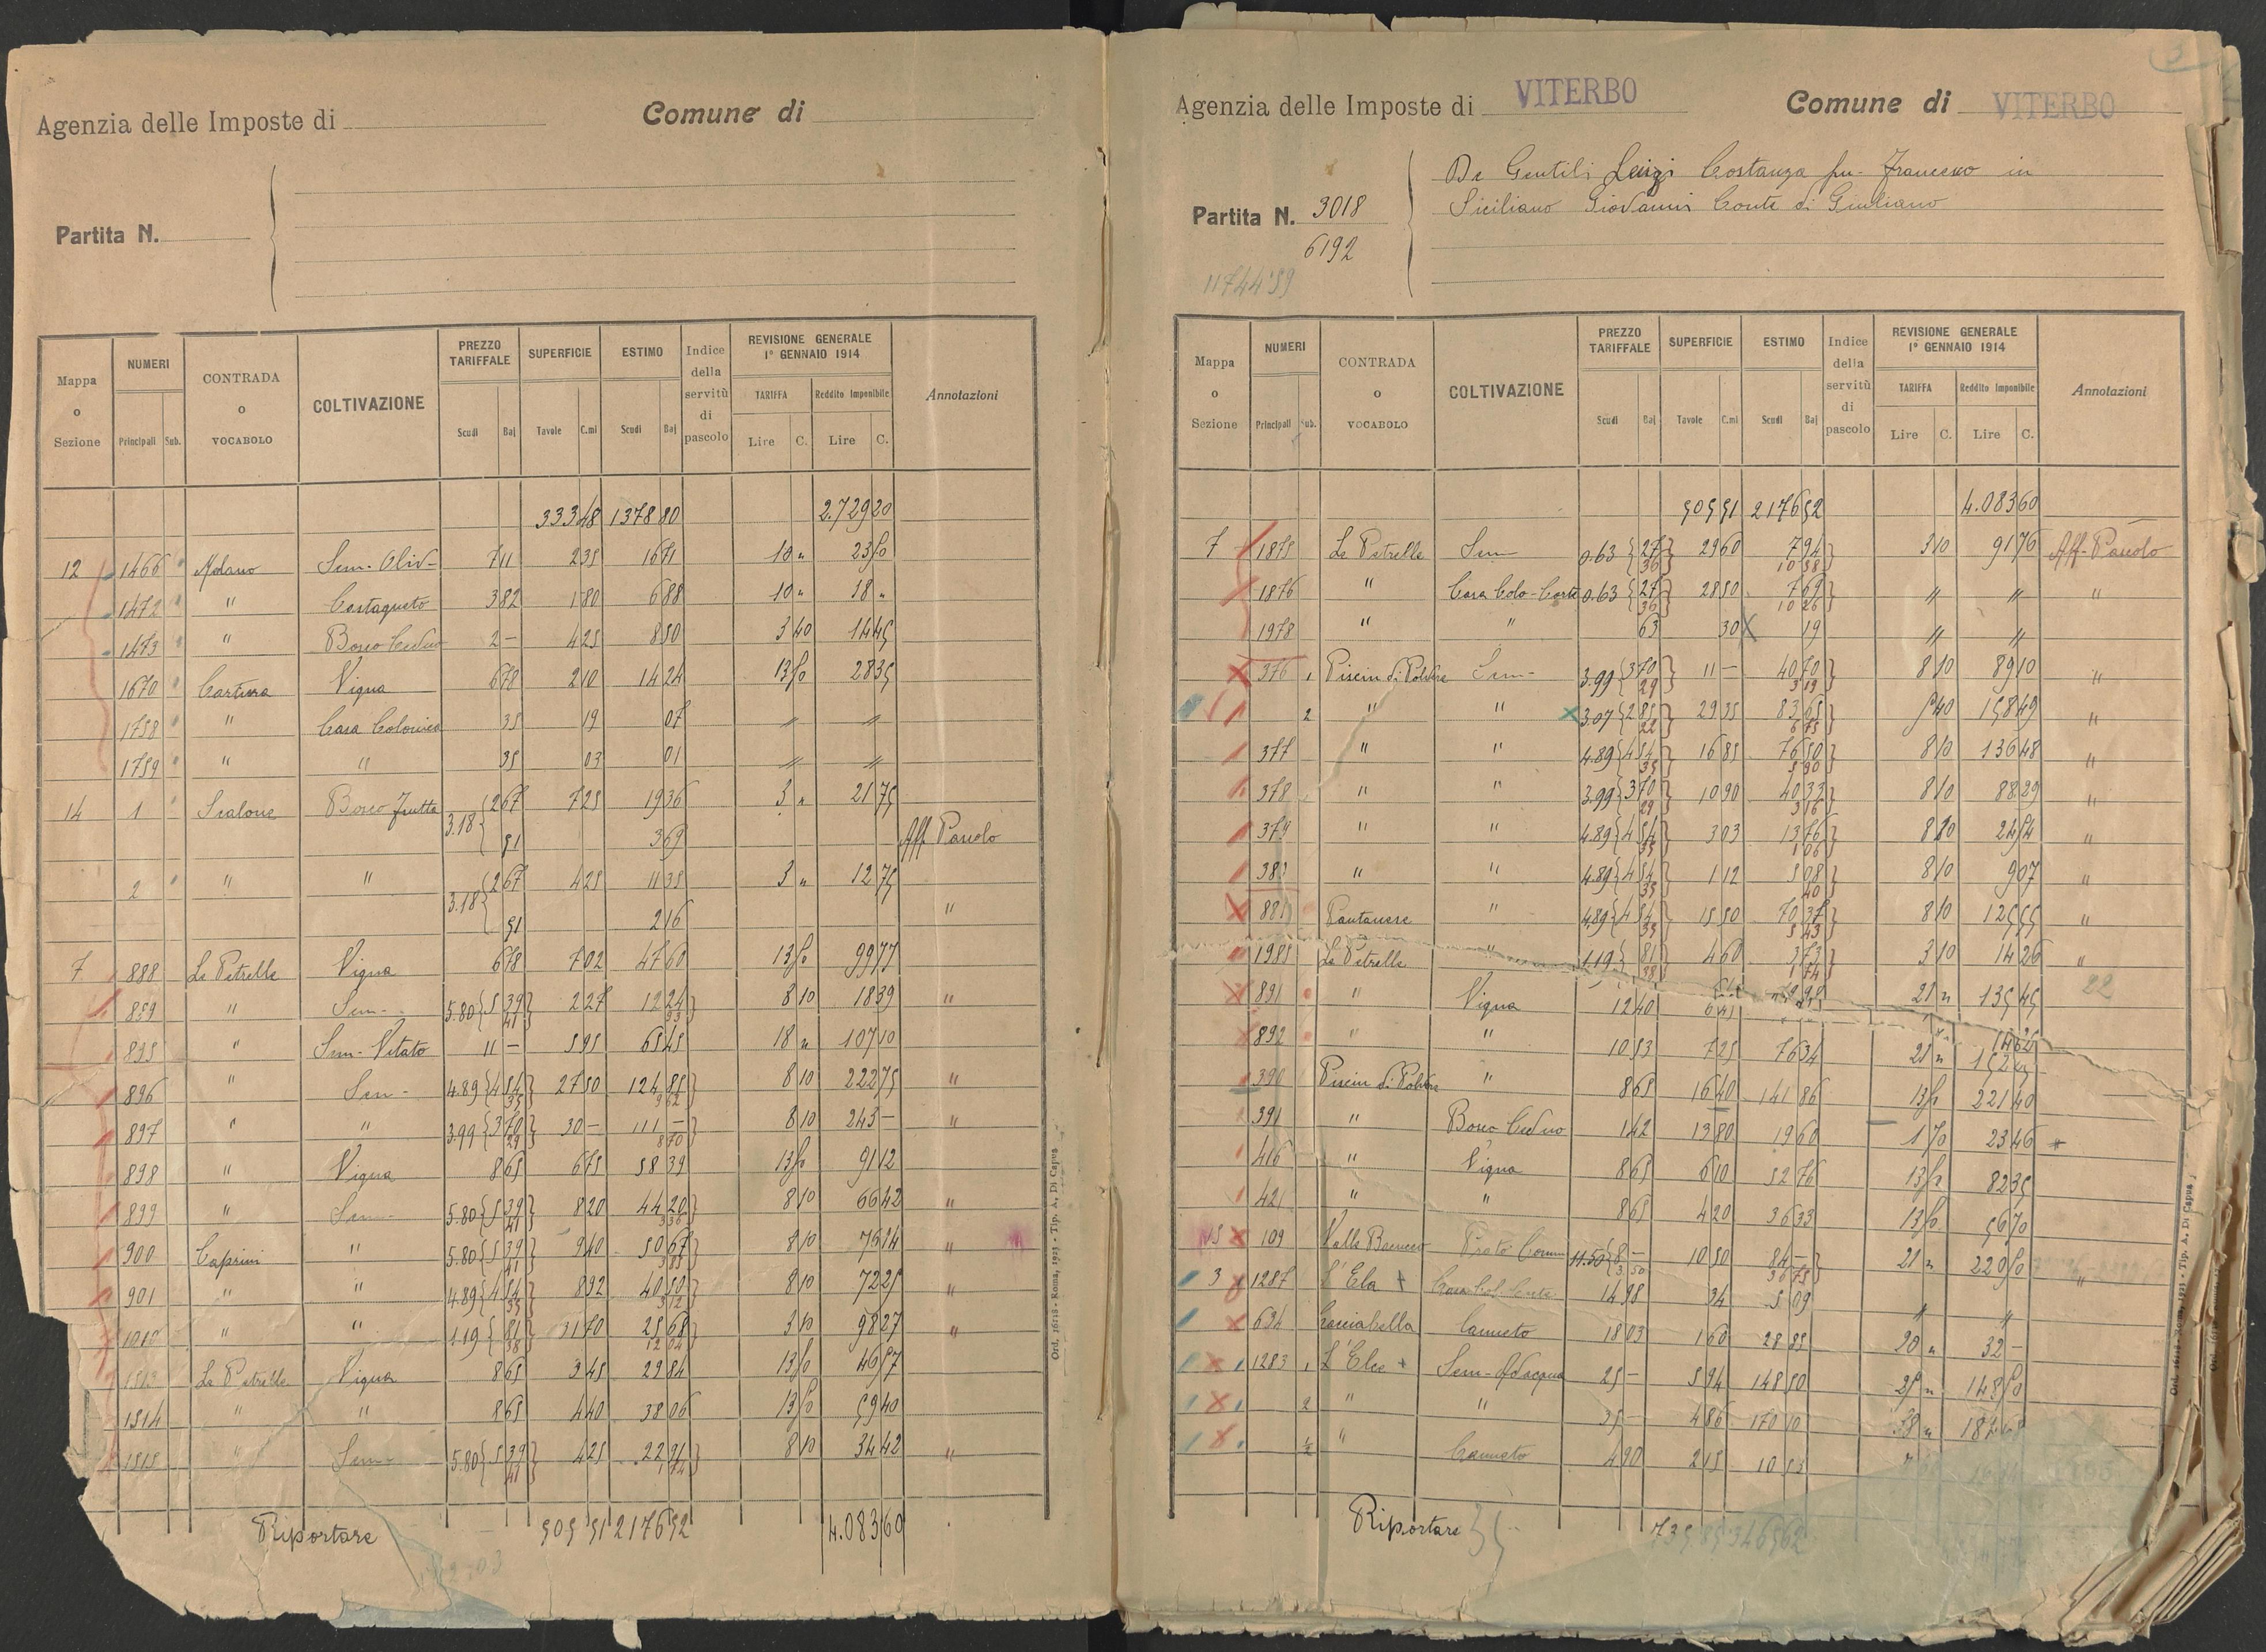 Agenzia delle Imposte di
Comune di
Partita N.
Mappa o Sezione
NUMERI
Principali Sub.
CONTRADA o VOCABOLO
COLTIVAZIONE
PREZZO TARIFFALE
Scudi Baj
SUPERFICIE
Tavole C.mi
ESTIMO
Scudi Baj
Indice della servitù di pascolo
REVISIONE GENERALE 1° GENNAIO 1914
TARIFFA
Lire C.
Reddito Imponibile
Lire C.
Annotazioni
333 48 1378 80 2.729 20
12 1466 Sem. Oliv- 7 11 2 35 16 71 10 " 23 50
1472 " Castagneto 3 82 1 80 6 88 10 " 18 "
1473 " Bosco Ceduo 2 - 4 25 8 50 3 40 14 45
1670 Cartiera Vigna 6 78 2 10 14 24 13 50 28 35
1758 " Casa Colonica 35 19 07 " "
1759 " " 35 03 01 " "
14 1 Bosco Frutta 3.18 { 2 67 7 25 19 36 3 " 21 75
51 3 69 Aff. Pascolo
2 " " 3.18 { 2 67 4 25 11 35 3 " 12 75
51 2 16 "
7 888 Le Petrelle Vigna 6 78 7 02 47 60 13 50
859 " Sem- 5.80 { 5 39 } 2 27 12 24 } 8 10 18 39 "
41 93
895 " Sem- Vitato 11 - 5 95 65 45 18 " 107 10
896 " Sem- 4.89 { 4 54 } 27 50 124 85 } 8 10 222 75 "
35 9 62
897 " " 3.99 { 3 70 } 30 - 111 - } 8 10 243 - "
29 8 70
898 " Vigna 8 65 6 75 58 39 13 50 91 12
899 " Sem- 5.80 { 5 39 } 8 20 44 20 } 8 10 66 42 "
41 3 36
900 Caprini " 5.80 { 5 39 } 9 40 50 67 } 8 10 76 14 "
41 3 85
901 " " 4.89 { 4 54 } 8 92 40 50 } 8 10 72 25 "
35 3 12
1010 " " 1.19 { 81 } 31 70 25 68 } 3 10 98 27 "
38 12 04
1513 Le Petrelle Vigna 8 65 3 45 29 84 13 50 46 57
1514 " " 8 65 4 40 38 06 13 50 59 40
1515 " Sem- 5.80 { 5 39 } 4 25 22 91 } 8 10 34 42 "
41 1 74
Riportare 505 51 2176 52 4.083 60
Ord. 16118 - Roma, 1923 - Tip. A. Di Capua
3
Agenzia delle Imposte di VITERBO
Comune di VITERBO
Partita N. 3018
6192
11744'59
De Gentili Luigi Costanza fu- Francesco in
Siciliano Giovanni Conte di Giuliano
Mappa o Sezione
NUMERI
Principali Sub.
CONTRADA o VOCABOLO
COLTIVAZIONE
PREZZO TARIFFALE
Scudi Baj
SUPERFICIE
Tavole C.mi
ESTIMO
Scudi Baj
Indice della servitù di pascolo
REVISIONE GENERALE 1° GENNAIO 1914
TARIFFA
Lire C.
Reddito Imponibile
Lire C.
Annotazioni
505 51 2176 52 4.083 60
7 1875 Le Petrelle Sem 0.63 { 27 } 29 60 7 94 } 3 10 91 76 Aff. Pascolo
36 10 58
1876 " Casa Colo- Corte 0.63 { 27 } 28 50 7 69 } " " "
36 10 26
1978 " " 63 30 X 19 " "
376 1 Piscin di Polvere Sem- 3.99 { 3 70 } 11 - 40 70 } 8 10 89 10 "
29 3 19
2 " " 3.07 { 2 85 } 29 35 83 65 } 5 40 158 49 "
22 6 75
377 " " 4.89 { 4 54 } 16 85 76 50 } 8 10 136 48 "
35 5 90
378 " " 3.99 { 3 70 } 10 90 40 33 } 8 10 88 29 "
29 3 16
379 " " 4.89 { 4 54 } 3 03 13 76 } 8 10 24 54 "
35 1 06
383 " " 4.89 { 4 54 } 1 12 5 08 } 8 10 9 07 "
35 40
881 Pantanese " 4.89 { 4 54 } 15 50 70 37 } 8 10 125 55 "
35 5 43
1985 Le Petrelle " 1.19 { 81 } 4 60 3 73 } 3 10 14 26 "
38 1 74
891 " Vigna 12 40 6 45 21 " 135 45 22
892 " " 10 53 7 25 76 34 21 "
390 Piscin di Polvere " 8 65 16 40 141 86 13 50 221 40
391 " Bosco Ceduo 1 42 13 80 19 60 1 70 23 46
416 " Vigna 8 65 6 10 52 76 13 50 82 35
421 " " 8 65 4 20 36 33 13 50 56 70
109 Prato 11.50 { 8 - 10 50 84 - } 21 " 220 50 "
3 50 36 75
3 1287 L'Ela + 14 98 34 5 09 " "
634 Cacciabella Canneto 18 03 1 60 28 85 20 " 32 -
1283 1 L'Elce + Sem- Adacqua 25 - 5 94 148 50 25 " 148 50
2 " " 35 - 4 86 170 10
" Canneto 4 90 2 15 10 53
Riportare 735 85 3465 62
Ord. 16118 - Roma, 1923 - Tip. A. Di Capua